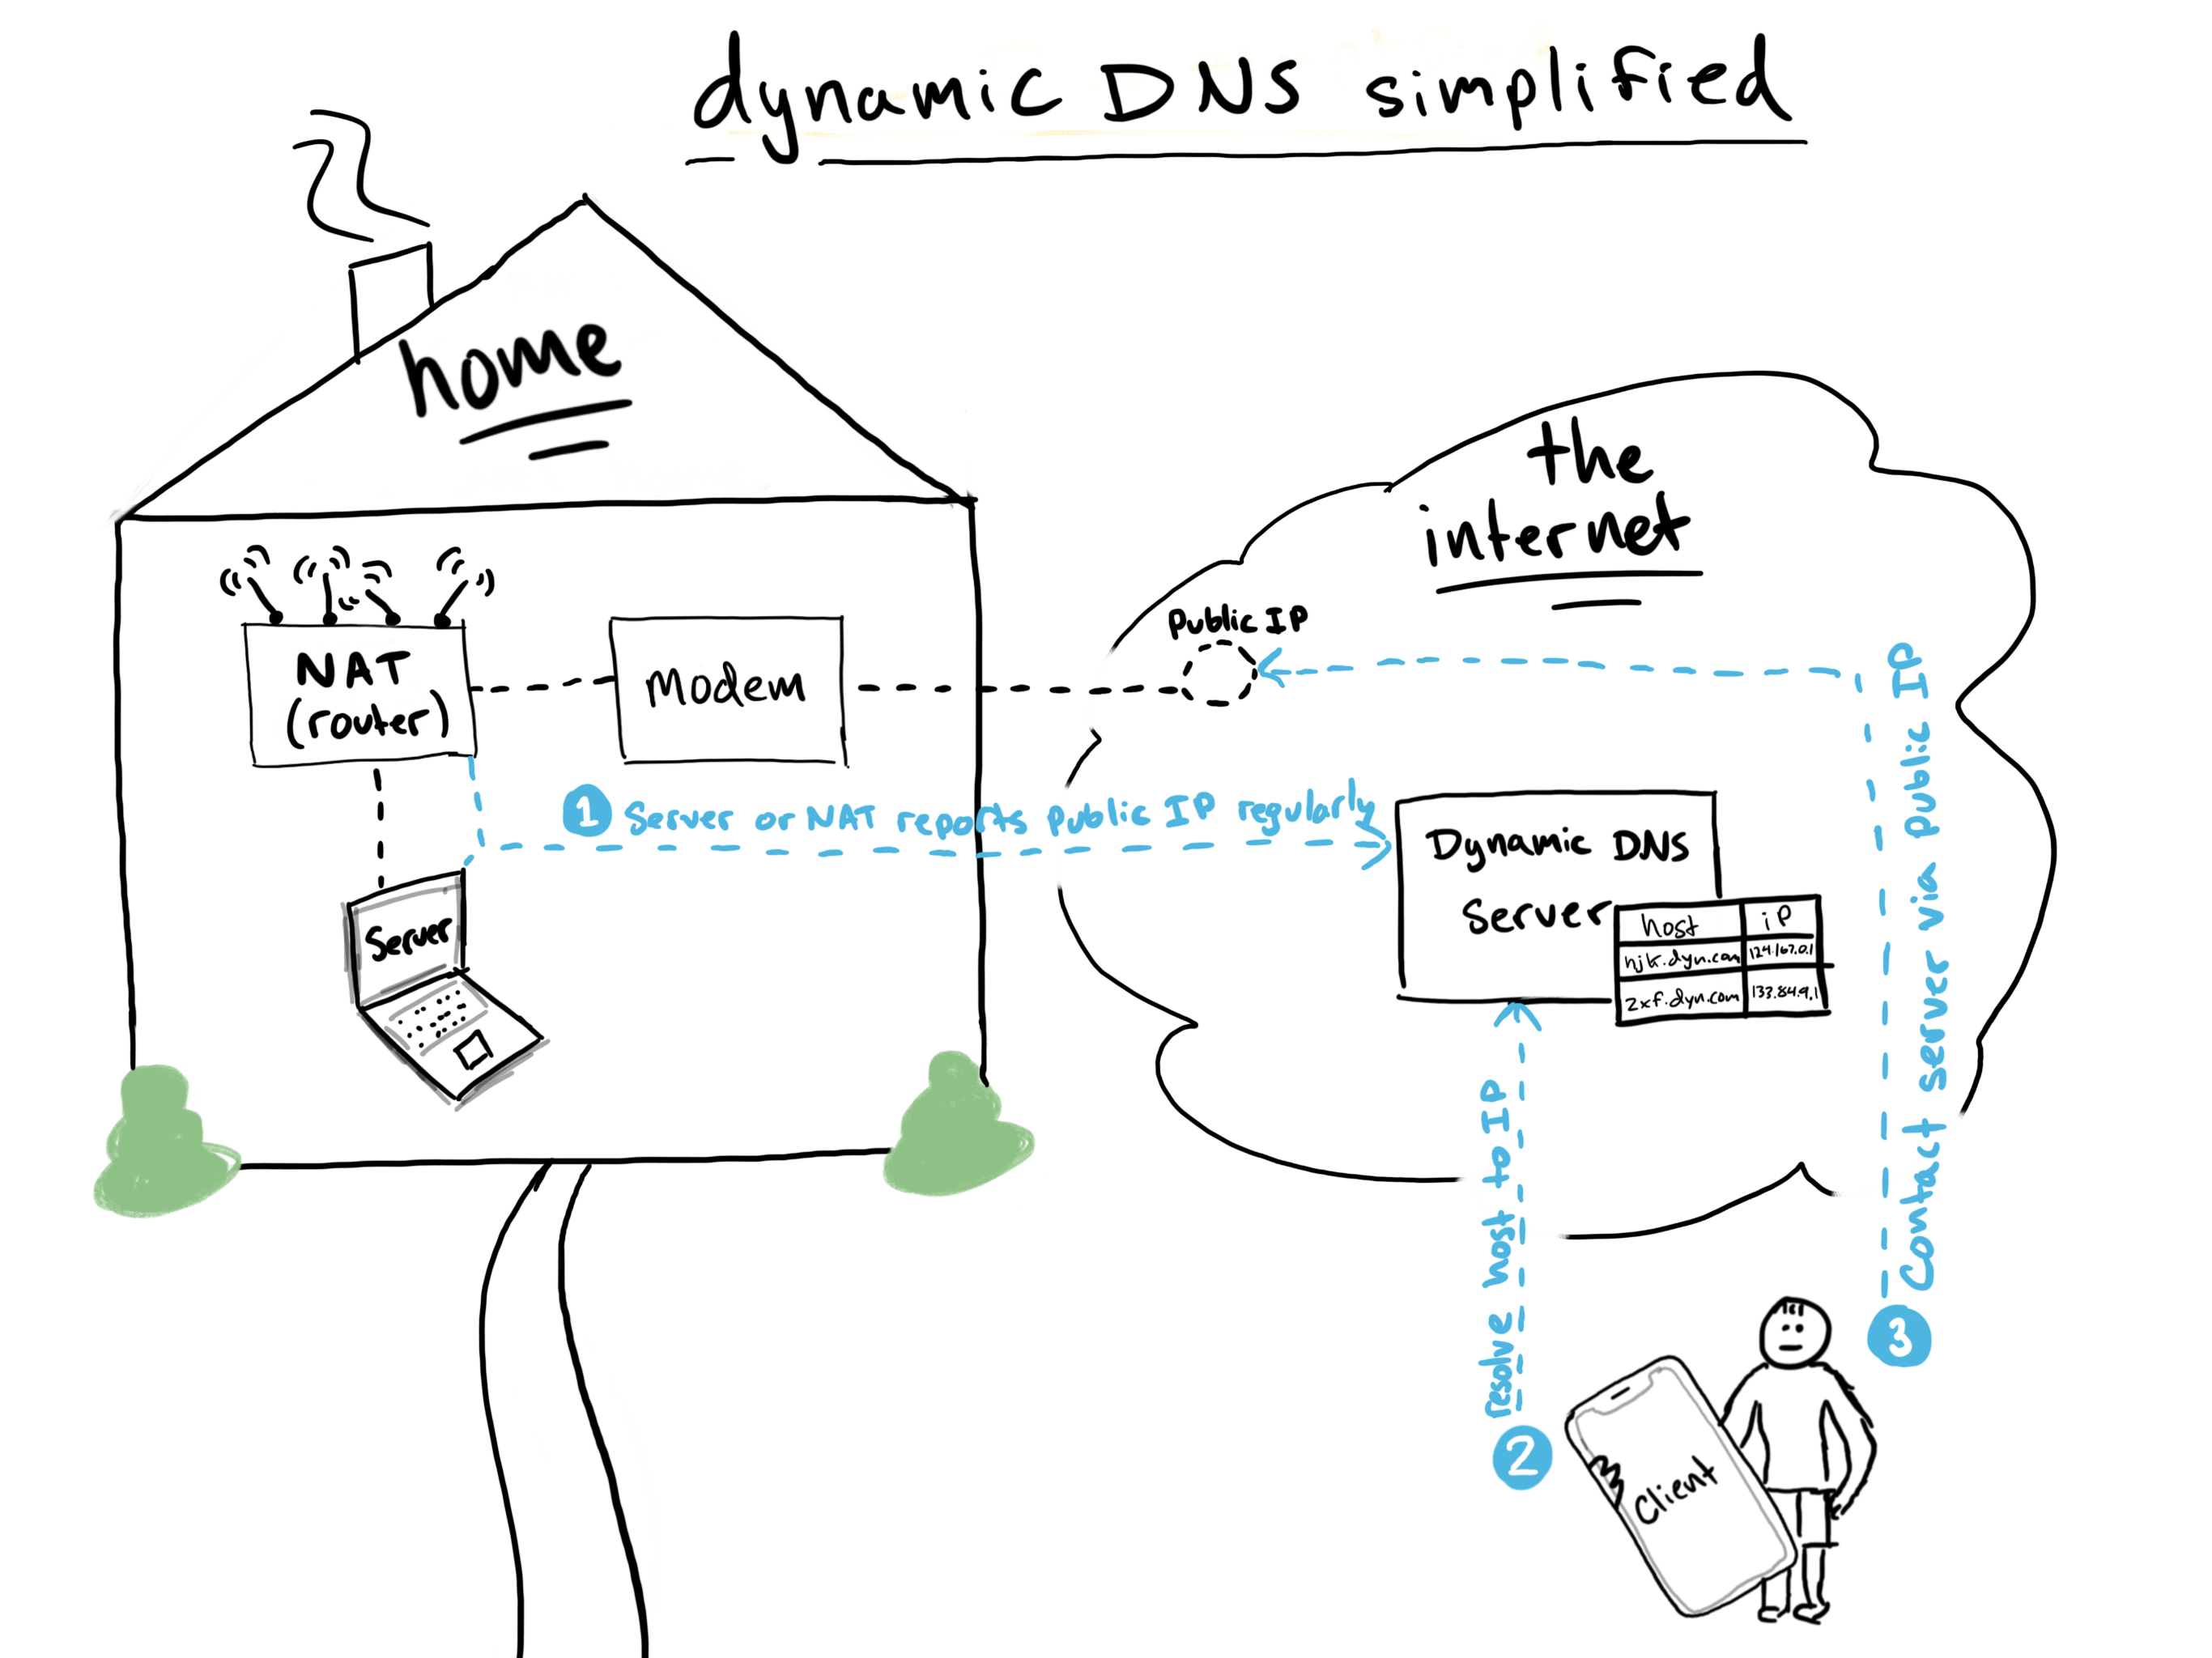 dynamic DNS simplified
home
the
internet
Public IP
NAT
(router)
Modem
1 Server or NAT reports public IP regularly
Dynamic DNS
Server
host iP
njk.dyn.com 124.167.0.1
zxf.dyn.com 133.84.9.1
Server
resolve host to IP
2
Contact server via public IP
3
Client